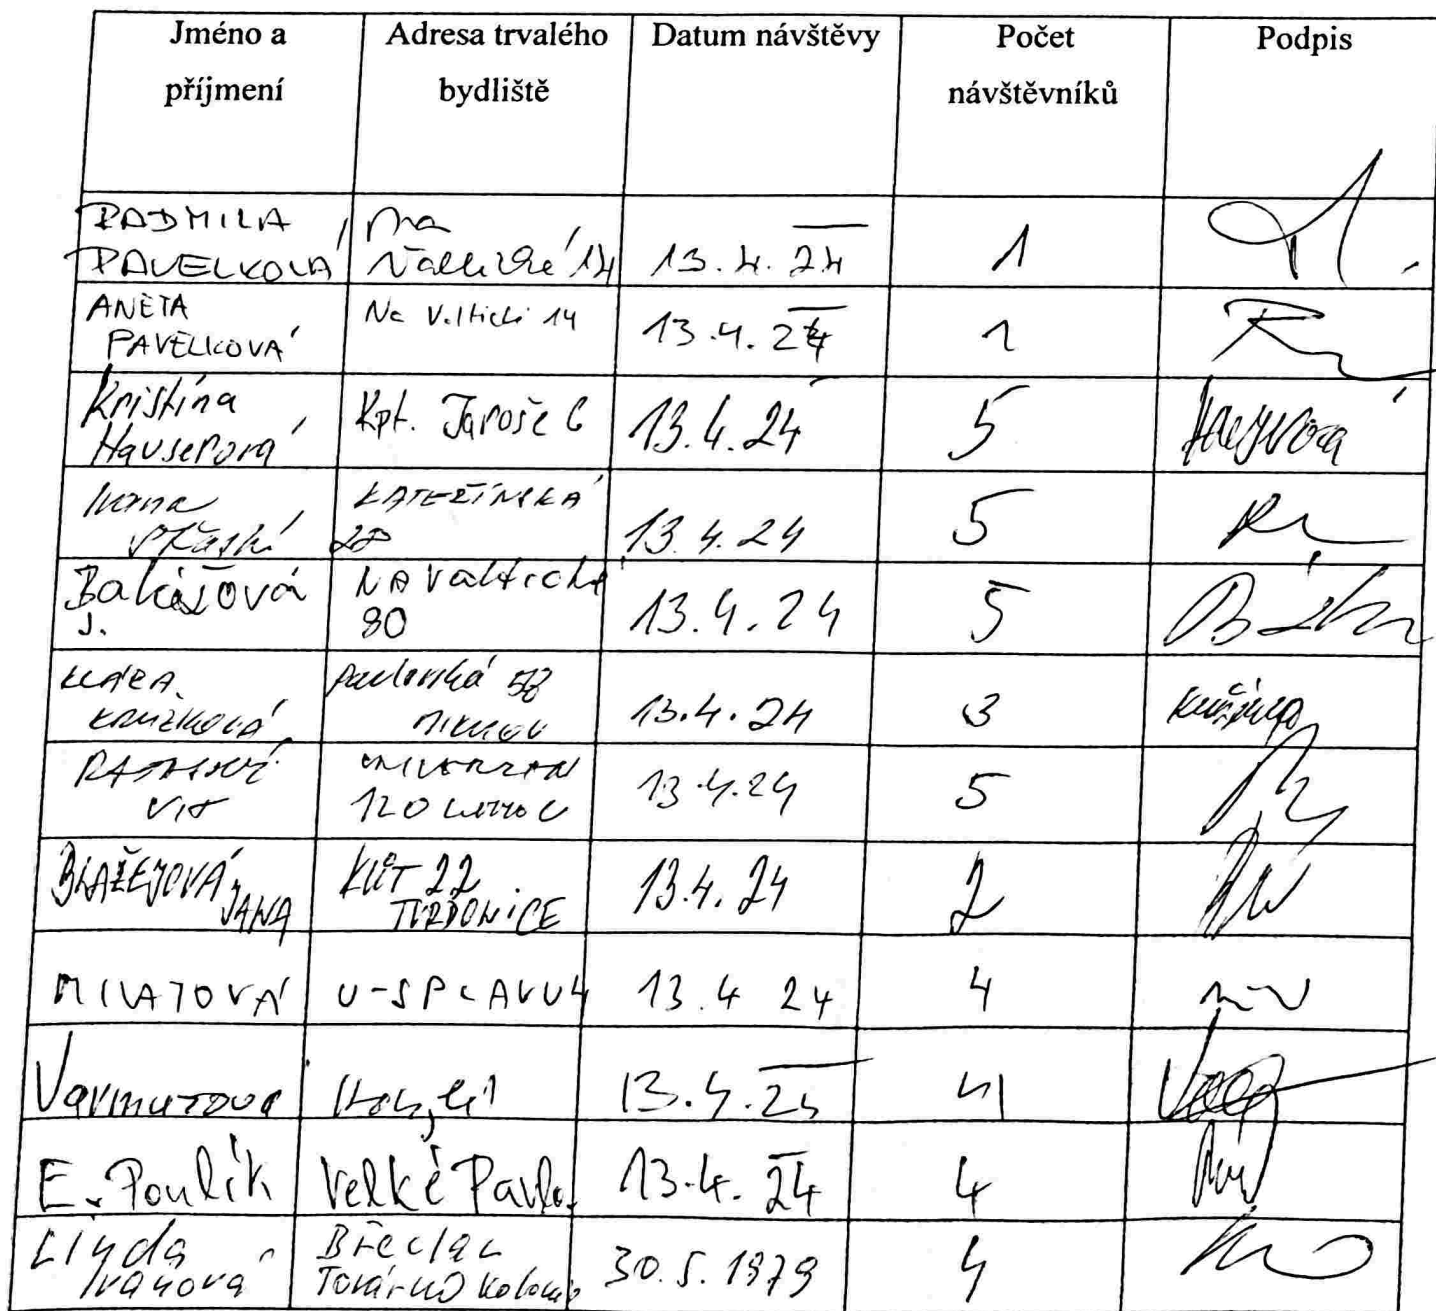 Jméno a příjmení
Adresa trvalého bydliště
Datum návštěvy
Počet návštěvníků
Podpis
RADMILA PAVELKOVÁ
Na Valtické 14
13.4.24
1
ANETA PAVELKOVÁ
Na Valtické 14
13.4.24
1
Kristína Hauserová
Kpt. Jaroše 6
13.4.24
5
Ivana
KATEŘINSKÁ 28
13.4.24
5
J.
NA Valtické 90
13.4.24
5
KLÁRA
Pavlovská 58 MIKULOV
13.4.24
3
VÍT
120
13.4.24
5
BLAŽEJOVÁ JANA
KÚT 22 TVRDONICE
13.4.24
2
MILATOVÁ
U-SPLAVU 4
13.4 24
4
Varmuzova
13.4.24
4
E. Poulík
Velké Pavlo.
13.4.24
4
Linda Ivanová
Břeclav
30.5.1979
4